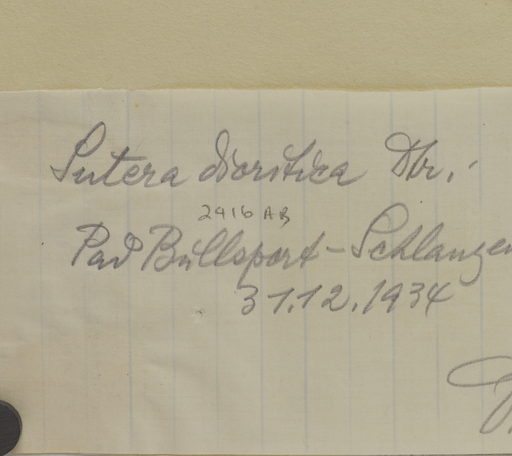 Sutera dioritica Dtr.
2416 AB
Pad Büllsport - Schlangen
31.12.1934